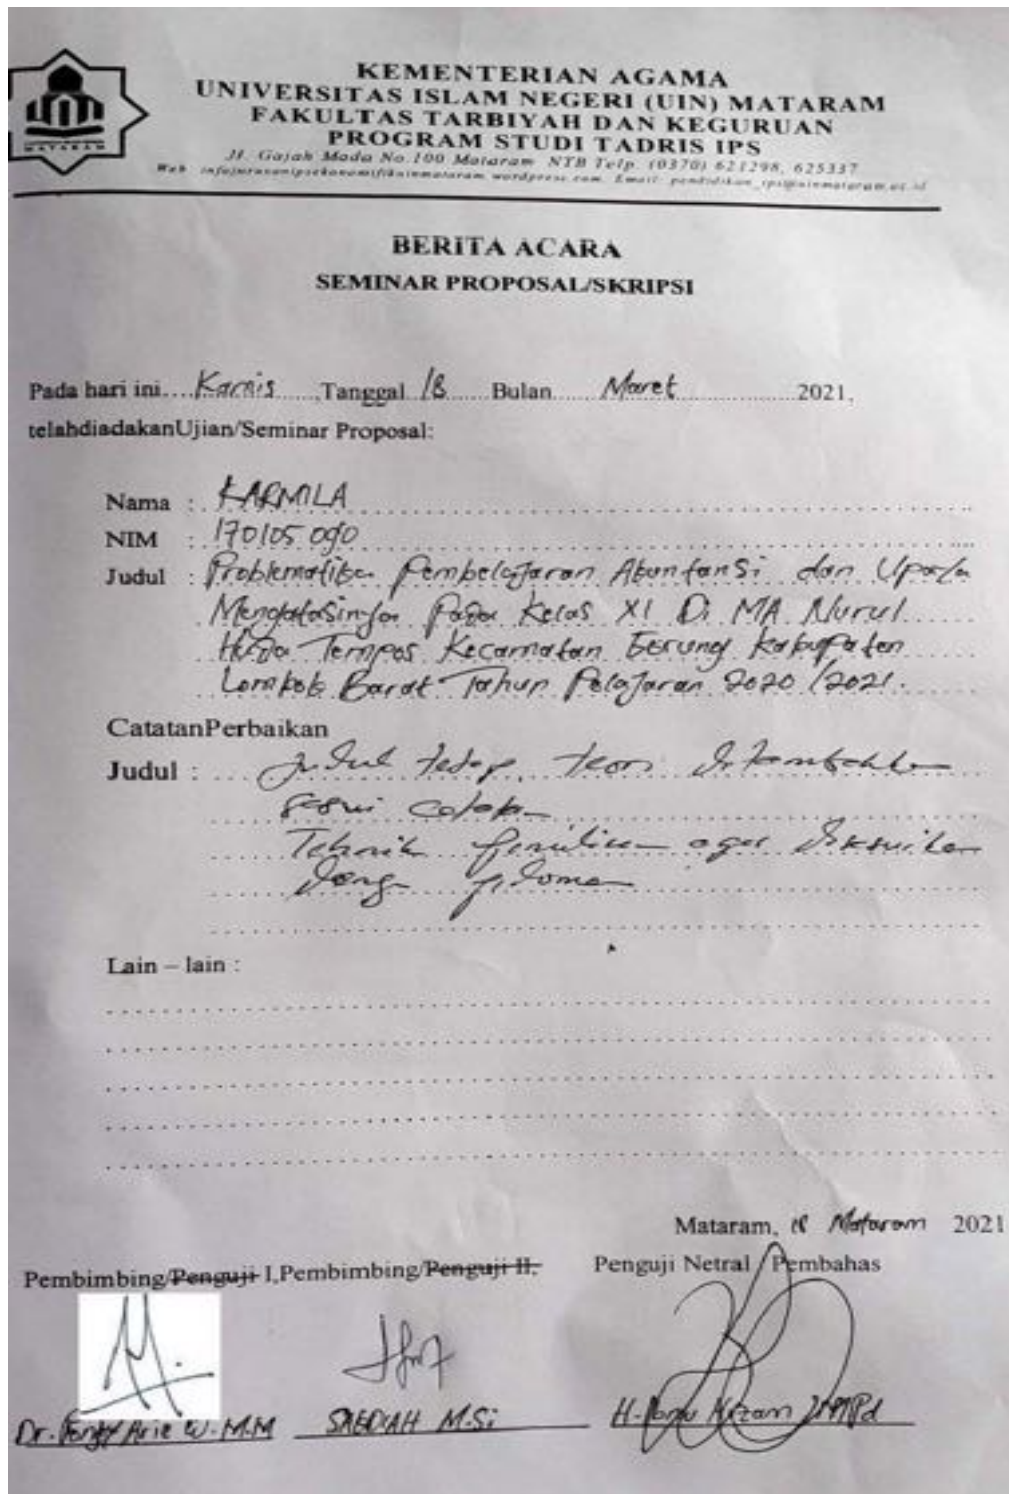 KEMENTERIAN AGAMA
UNIVERSITAS ISLAM NEGERI (UIN) MATARAM
FAKULTAS TARBIYAH DAN KEGURUAN
PROGRAM STUDI TADRIS IPS
Jl. Gajah Mada No.100 Mataram NTB Telp. (0370) 621298, 625337
Web
MATARAM
BERITA ACARA
SEMINAR PROPOSAL/SKRIPSI
Pada hari ini....Kamis......,Tanggal 18......Bulan......Maret..................2021,
telahdiadakanUjian/Seminar Proposal:
Nama : KARMILA
NIM : 170105090
Judul : Problematika Pembelajaran Akuntansi dan Upaya
Mengatasinya Pada Kelas XI Di MA Nurul
Huda Tempos Kecamatan Gerung Kabupaten
Lombok Barat Tahun Pelajaran 2020/2021.
CatatanPerbaikan
Judul : Judul tetap, teori ditambahkan
sesuai catatan
Teknik penulisan agar disesuaikan
dengan pedoman
Lain – lain :
Mataram, 18 Mataram 2021
Pembimbing/Penguji I,Pembimbing/Penguji II, Penguji Netral / Pembahas
Dr. Arie W. M.M SAEDIAH M.Si H.